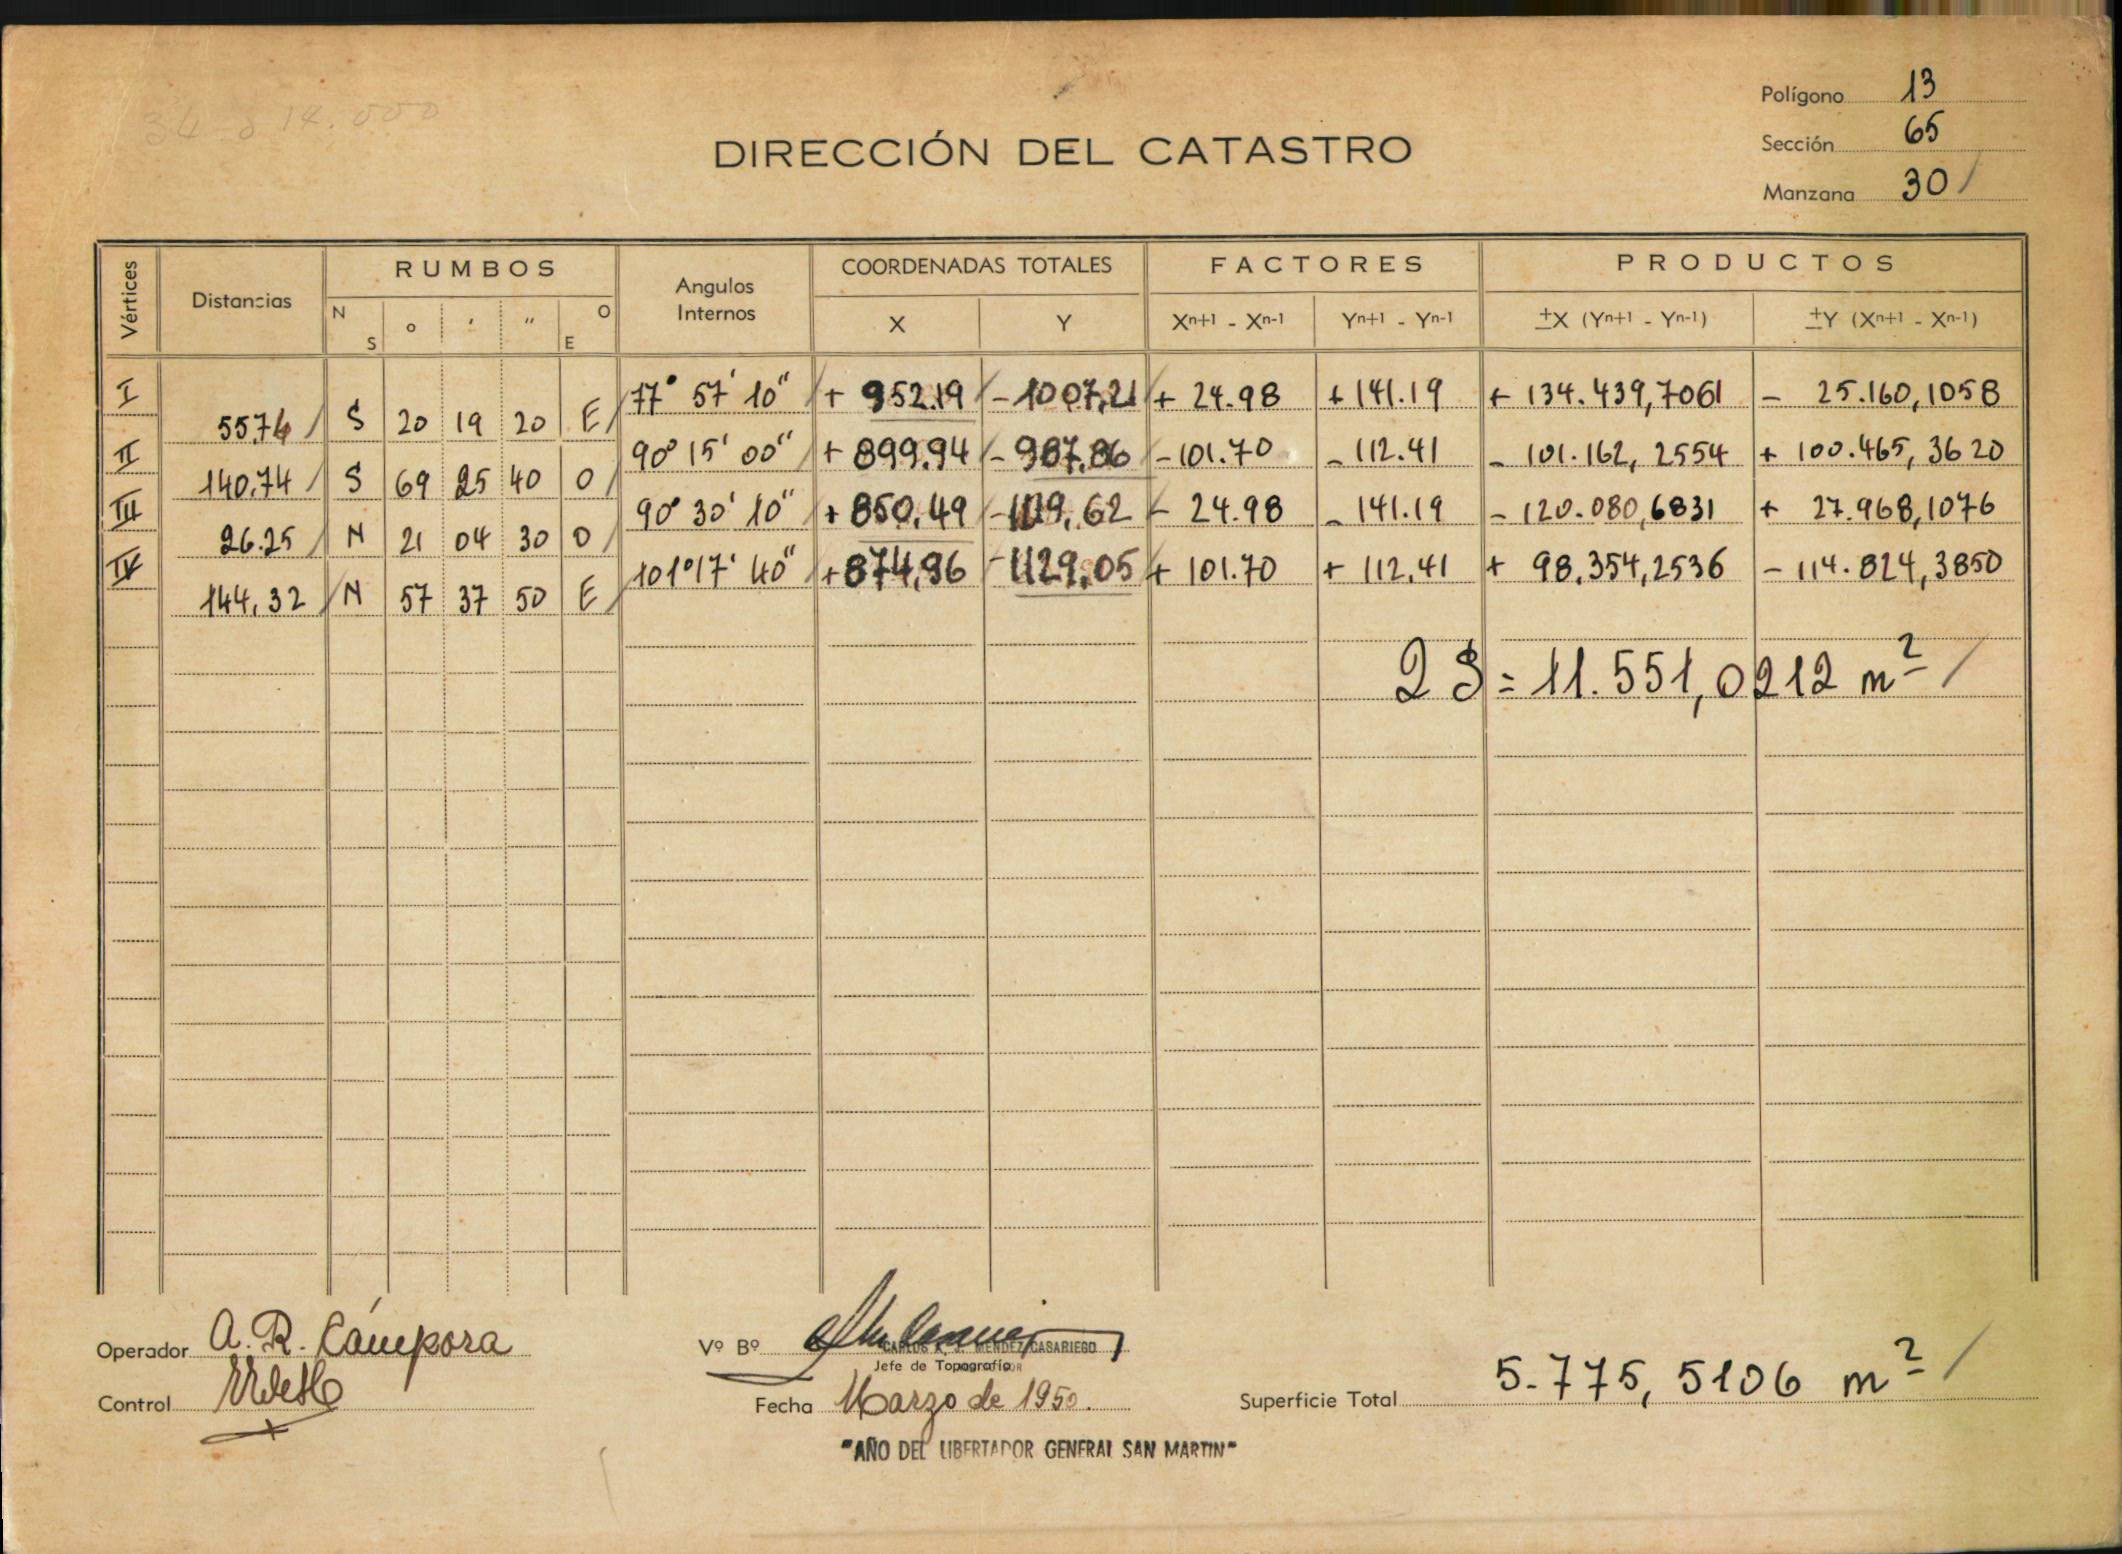 34 a 14.000
Polígono 13
Sección 65
Manzana 30 /
DIRECCIÓN DEL CATASTRO
Vértices Distancias RUMBOS Angulos Internos COORDENADAS TOTALES FACTORES PRODUCTOS
N S o ' " O E X Y Xn+1 - Xn-1 Yn+1 - Yn-1 ±X (Yn+1 - Yn-1) ±Y (Xn+1 - Xn-1)
I 77° 57' 10" / + 952.19 / - 1007,21 / + 24.98 + 141.19 + 134.439,7061 - 25.160,1058
55.74 / S 20 19 20 E /
II 90° 15' 00" / + 899.94 / - 987,86 / - 101.70 - 112.41 - 101.162,2554 + 100.465,3620
140.74 / S 69 25 40 O /
III 90° 30' 10" / + 850.49 / - 1119,62 / - 24.98 - 141.19 - 120.080,6831 + 27.968,1076
26.25 / N 21 04 30 O /
IV 101° 17' 40" / + 874,96 / - 1129,05 / + 101.70 + 112.41 + 98.354,2536 - 114.824,3850
144,32 / N 57 37 50 E /
2 S = 11.551,0212 m² /
Operador A. R. Cámpora
Control
Vº Bº
CARLOS A. J. MENDEZ CASARIEGO
Jefe de Topografía
Fecha Marzo de 1950.
Superficie Total 5.775,5106 m² /
"AÑO DEL LIBERTADOR GENERAL SAN MARTIN"